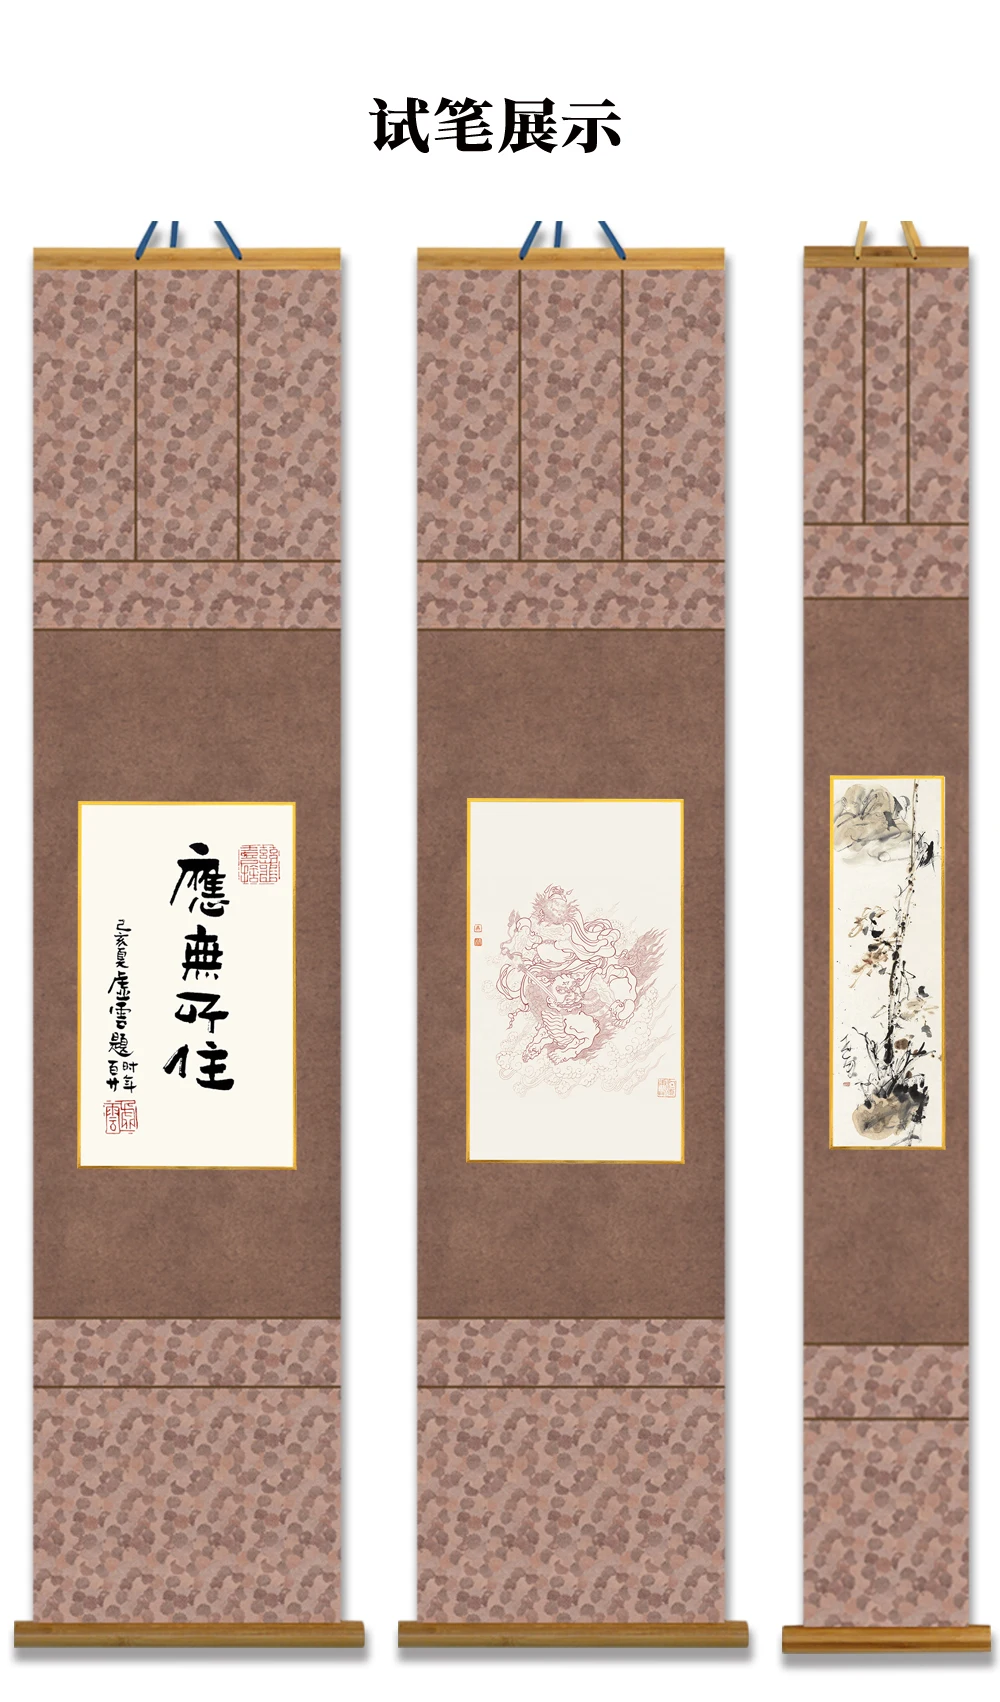 试笔展示
應無所住
己亥夏虚雲題
时年百廿